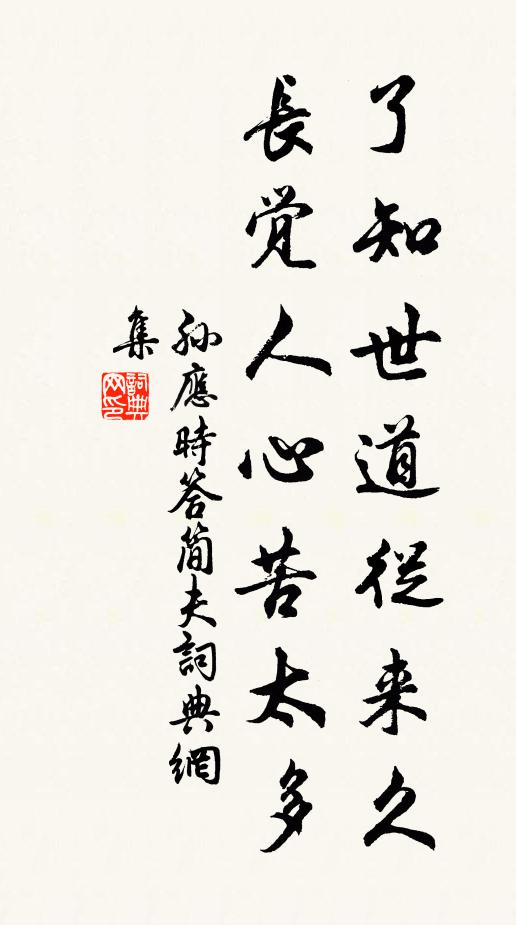 了知世道從来久
長覚人心苦太多
孙應時答简夫詞典網
集
詞典
网印